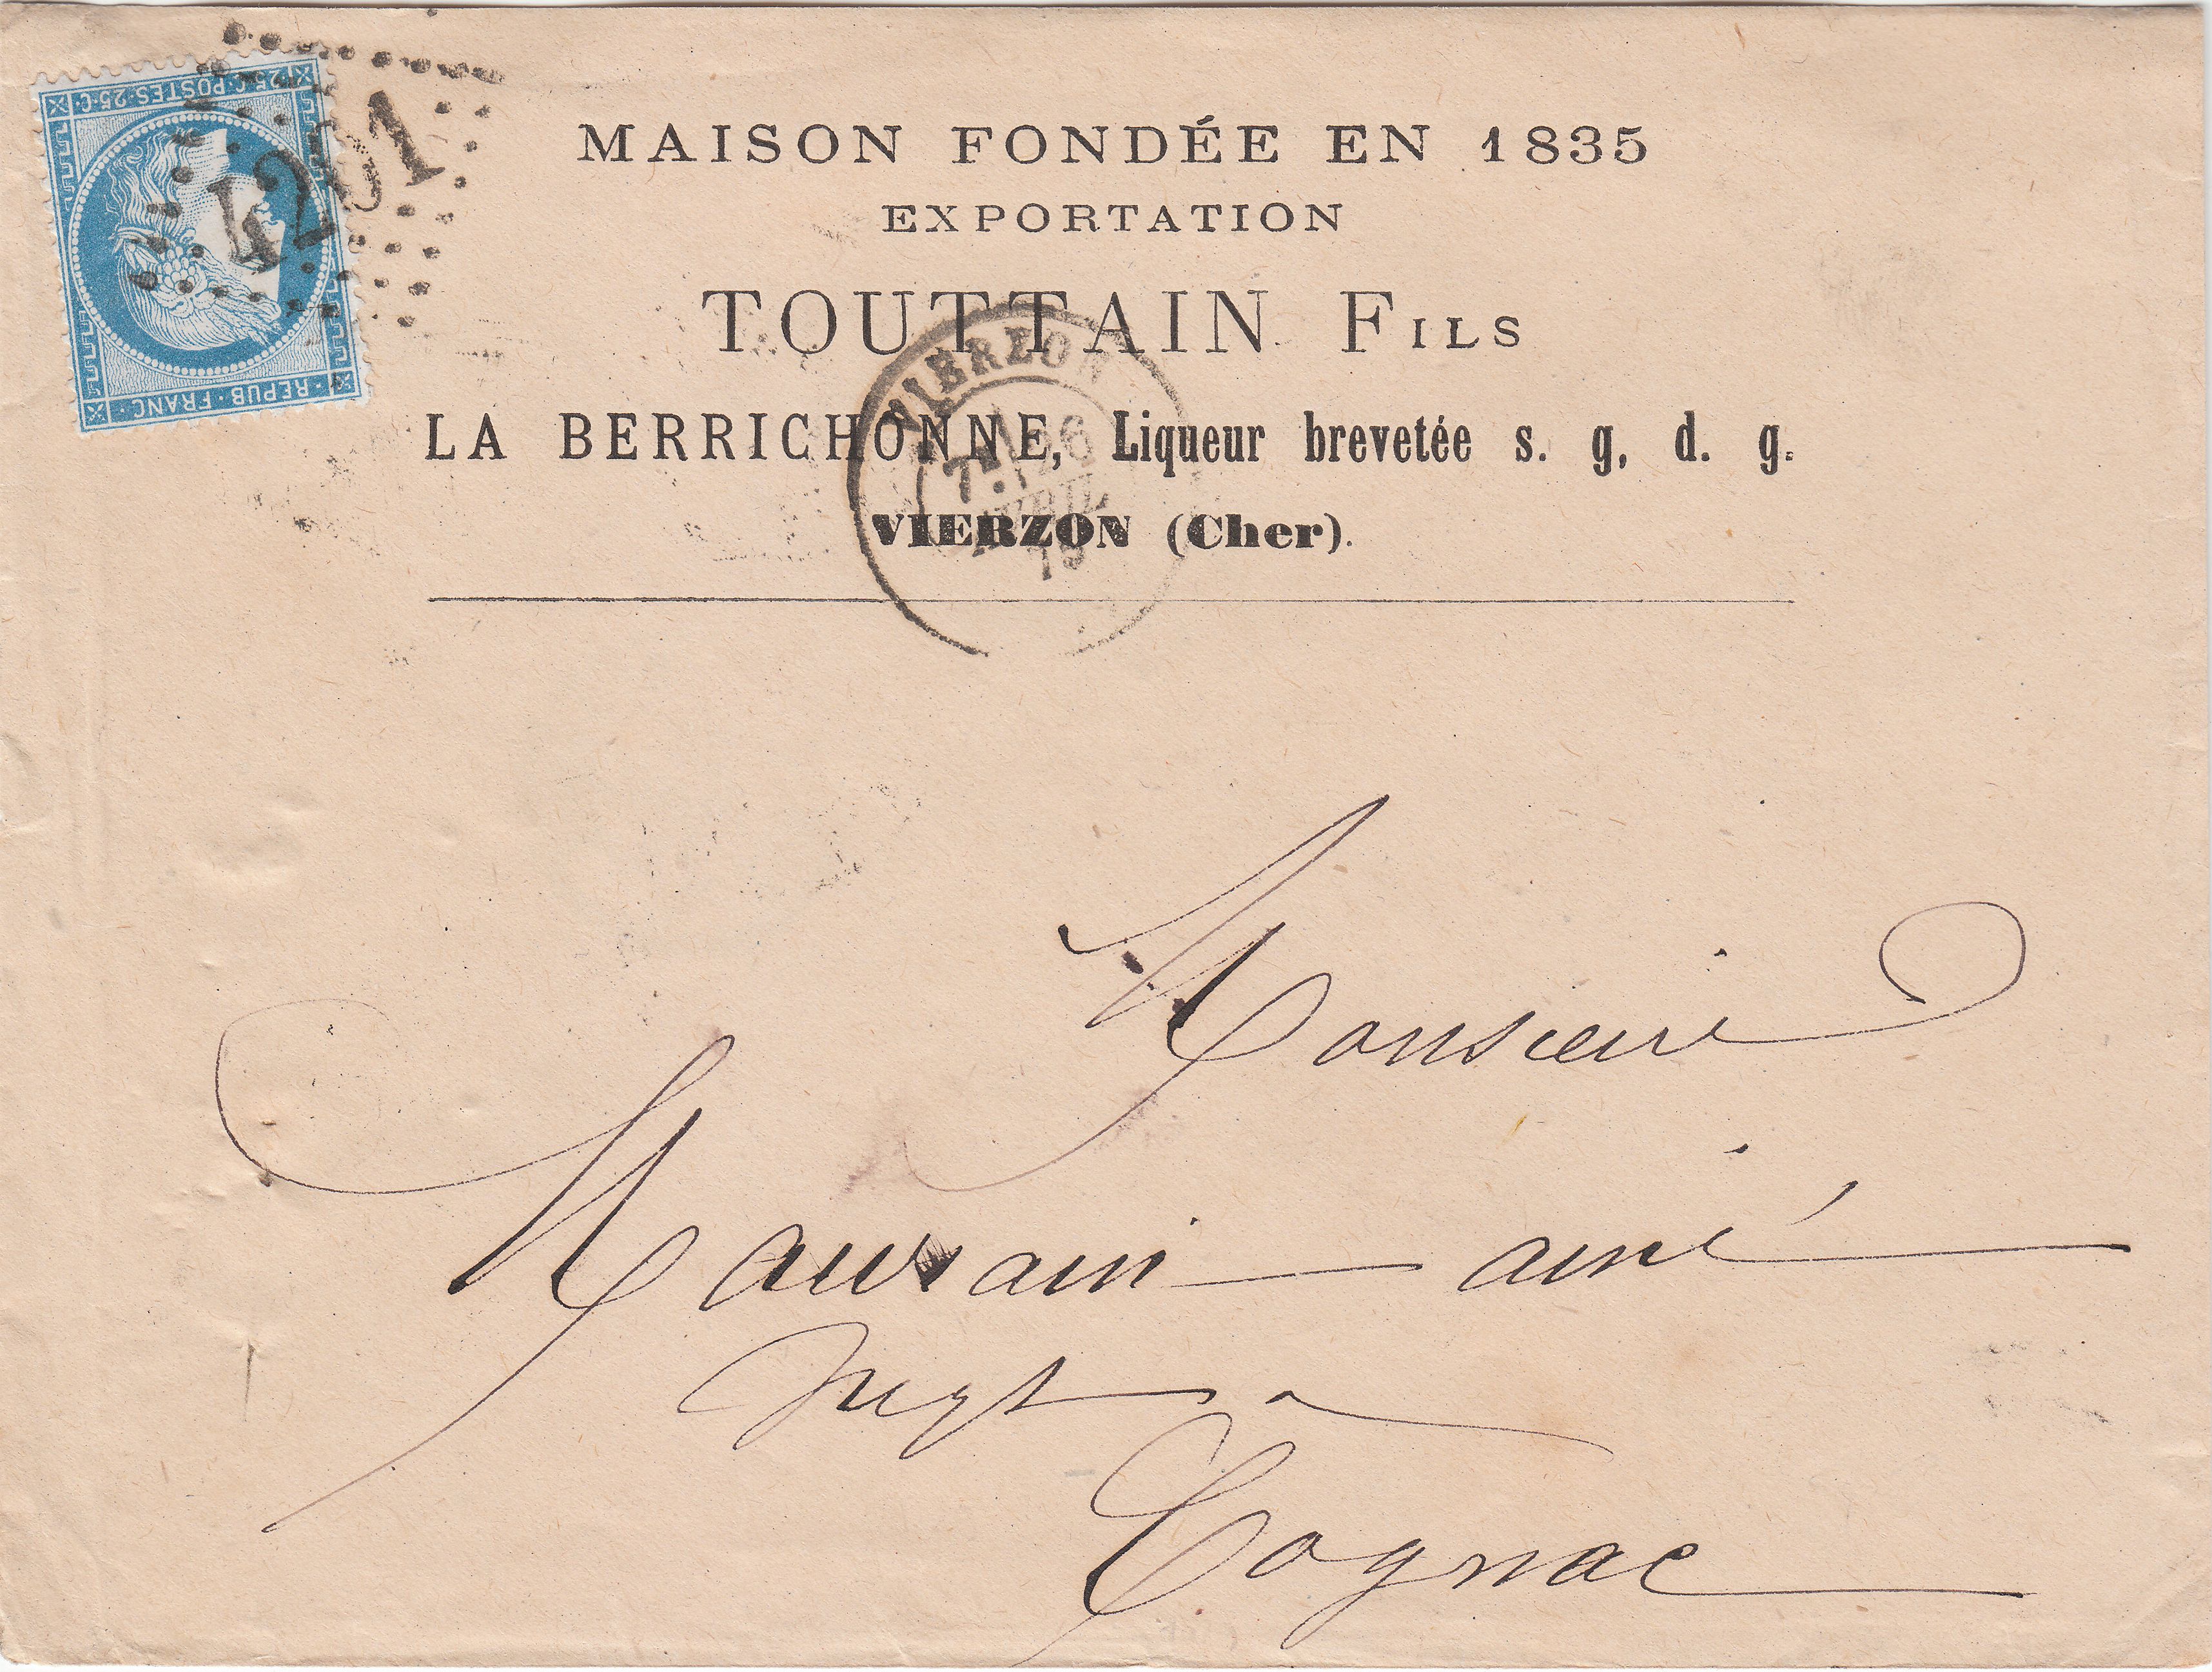 25·C·POSTES·25·C
REPUB·FRANC·
MAISON FONDÉE EN 1835
EXPORTATION
TOUTTAIN FILS
LA BERRICHONNE, Liqueur brevetée s. g. d. g.
VIERZON (Cher).
VIERZON
26
AVRIL
Monsieur
ainé
Negt à
Cognac